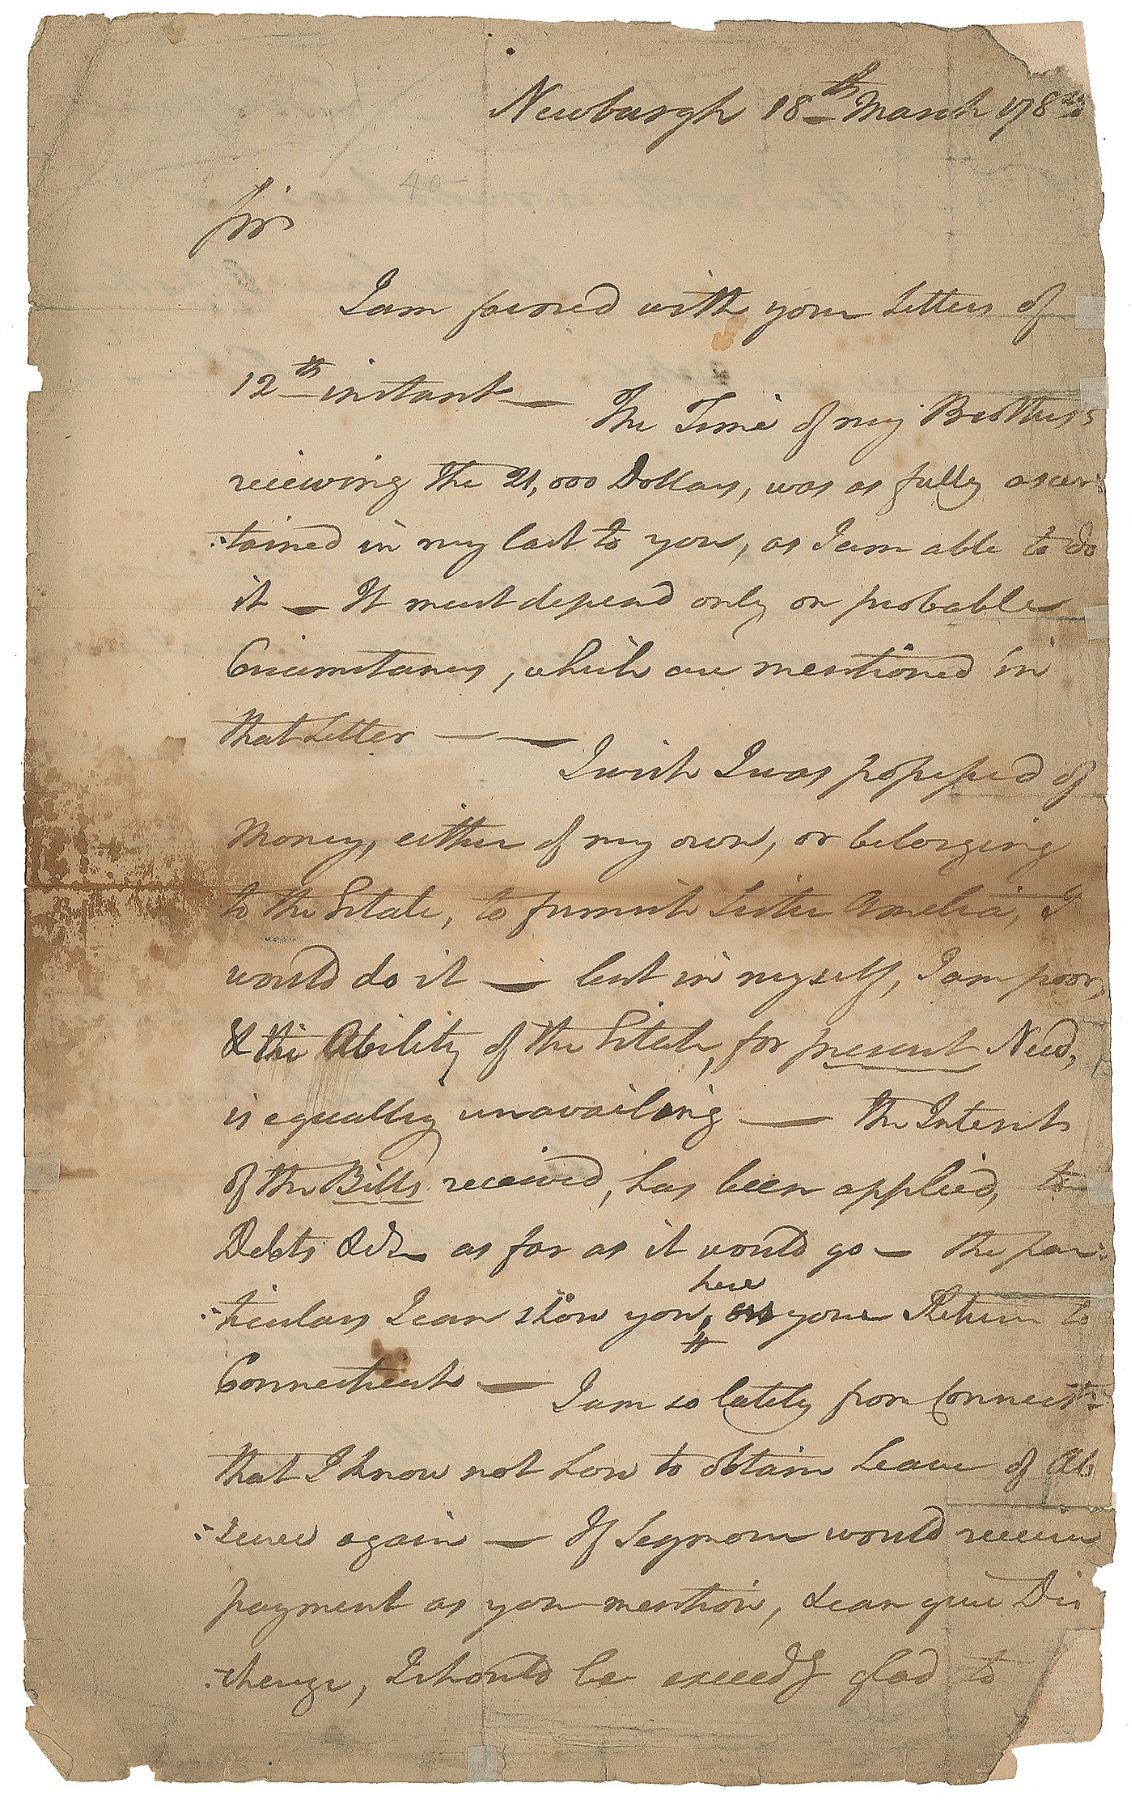 Newburgh 18th March 178
Sir
I am favored with your Letters of
12th instant — The Time of my Brothers
receiving the 21,000 Dollars, was as fully ascer:
:tained in my last to you, as I am able to do
it — It must depend only on probable
Circumstances, which are mentioned in
that Letter — —
I wish I was possessed of
Money, either of my own, or belonging
to the Estate, to furnish Sister Amelia, I
would do it — but in myself, I am poor,
& the Ability of the Estate, for present Need,
is equally unavailing — the Interest
of the Bills received, has been applied, to
Debts &c as far as it would go — the par:
:ticulars I can show you, here on your Return to
Connecticut — I am so lately from Connect:
that I know not how to obtain Leave of Ab
:sence again — If Seymour would receive
payment as you mention, & can give Dis
:charge, I should be exceedg glad to
40